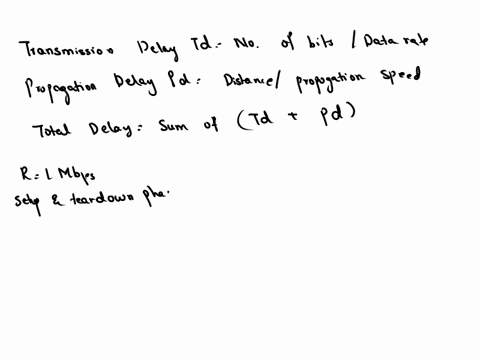 Transmission Delay Td = No. of bits / Data rate
Propagation Delay Pd = Distance / propogation speed
Total Delay = Sum of (Td + Pd)
R = 1 Mbps
Setup & teardown pha.